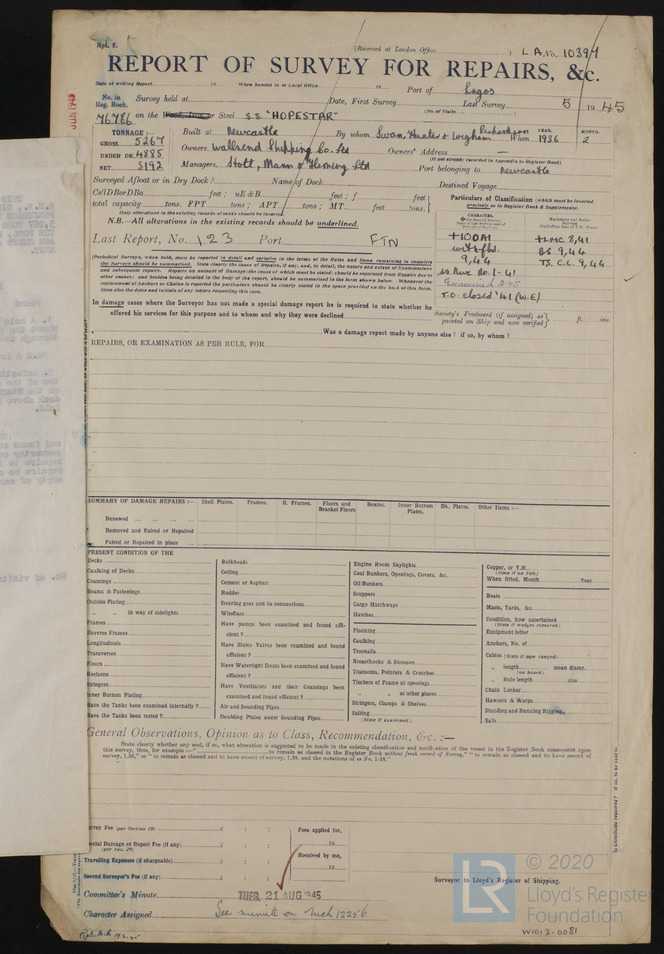 Rpt. 8.
(Received at London Office
L.A. No. 10397
REPORT OF SURVEY FOR REPAIRS, &c.
Date of writing Report 19 When handed in at Local Office 19 Port of Lagos
No. in Reg. Book. Survey held at Date, First Survey Last Survey 5 1945
(No. of Visits
76786 on the Wood, Iron, or Steel S.S. "HOPESTAR"
TONNAGE:— Built at Newcastle By whom Swan, Hunter & Wigham Richardson When 1936 2
YEAR. MONTH.
GROSS 5267 Owners Wallsend Shipping Co. Ltd Owners' Address —
UNDER DK. 4895 (If not already recorded in Appendix to Register Book)
NET 3192 Managers Stott, Mann & Fleming Ltd Port belonging to Newcastle
Surveyed Afloat or in Dry Dock? Name of Dock Destined Voyage
CellDBorDBa feet; uE&B feet; f feet;
total capacity tons. FPT tons; APT tons; MT feet tons.
Only alterations in the existing records of tanks should be inserted.
N.B.—All alterations in the existing records should be underlined.
Particulars of Classification (which must be inserted
precisely as in Register Book & Supplements)
CHARACTER.
Last Report, No. 123 Port FTN
+100A1
with fbd.
9,44
ss Nwc No.1-41
Examined 2.45
T.D. closed '41 (W.E)
+LMC 8,41
BS 9,44
TS. C.L. 9,44
(Periodical Surveys, when held, must be reported in detail and seriatim in the terms of the Rules and items remaining to complete
the Surveys should be summarised. State clearly the cause of Repairs, if any, and, in detail, the nature and extent of Examinations
and subsequent repairs. Repairs on account of Damage (the cause of which must be stated) should be separated from Repairs due to
other causes; and besides being detailed in the body of the report, should be summarised in the form above below. Whenever the
replacement of Anchors or Chains is reported the particulars should be clearly stated in the space provided on the back of this form.
State also the dates and initials of any letters respecting this case.
In damage cases where the Surveyor has not made a special damage report he is required to state whether he
offered his services for this purpose and to whom and why they were declined
Society's Freeboard (if assigned) as painted on Ship and now verified ft. ins.
Was a damage report made by anyone else? if so, by whom?
REPAIRS, OR EXAMINATION AS PER RULE, FOR
SUMMARY OF DAMAGE REPAIRS:— Shell Plates. Frames. H. Frames. Floors and Bracket Floors Beams. Inner Bottom Plates. Dk. Plates. Other Items:—
Renewed
Removed and Faired or Repaired
Faired or Repaired in place
PRESENT CONDITION OF THE
Decks
Caulking of Decks
Coamings
Beams & Fastenings
Outside Plating
" " in way of sidelights
Frames
Reverse Frames
Longitudinals
Transverses
Floors
Keelsons
Stringers
Inner Bottom Plating
Have the Tanks been examined internally?
Have the Tanks been tested?
Bulkheads
Ceiling
Cement or Asphalt
Rudder
Steering gear and its connections
Windlass
Have pumps been examined and found efficient?
Have Sluice Valves been examined and found efficient?
Have Watertight Doors been examined and found efficient?
Have Ventilators and their Coamings been examined and found efficient?
Air and Sounding Pipes
Doubling Plates under Sounding Pipes
Engine Room Skylights
Coal Bunkers, Openings, Covers, &c.
Oil Bunkers
Scuppers
Cargo Hatchways
Hatches
Planking
Caulking
Treenails
Breasthooks & Stemson
Transoms, Pointers & Crutches
Timbers of Frame at openings
" " at other places
Stringers, Clamps & Shelves
Salting
(State if examined)
Copper, or Y.M.
(State if on Felt)
When fitted, Month Year
Boats
Masts, Yards, &c.
Condition, how ascertained
(State if wedges removed)
Equipment letter
Anchors, No. of
Cables (State if now ranged)
" length mean diamr.
(on board)
" Rule length size
Chain Locker
Hawsers & Warps
Standing and Running Rigging
Sails
General Observations, Opinion as to Class, Recommendation, &c.:—
State clearly whether any and, if so, what alteration is suggested to be made in the existing classification and notification of the vessel in the Register Book consequent upon
this survey, thus, for example:—" to remain as classed in the Register Book without fresh record of Survey," "to remain as classed and to have record of
survey, 1,38," or "to remain as classed and to have record of survey, 1,38, and the notations of ss No. 1-38."
Survey Fee (per Section 29) £ : : Fees applied for,
Special Damage or Repair Fee (if any) £ : : 19
(per Sec. 29)
Travelling Expenses (if chargeable) £ : : Received by me,
Second Surveyor's Fee (if any) £ : : 19
Surveyor to Lloyd's Register of Shipping.
Committee's Minute TUES. 21 AUG 1945
Character Assigned See minute on Mch 12256
© 2020
LR
Lloyd's Register
Foundation
W1013-0081